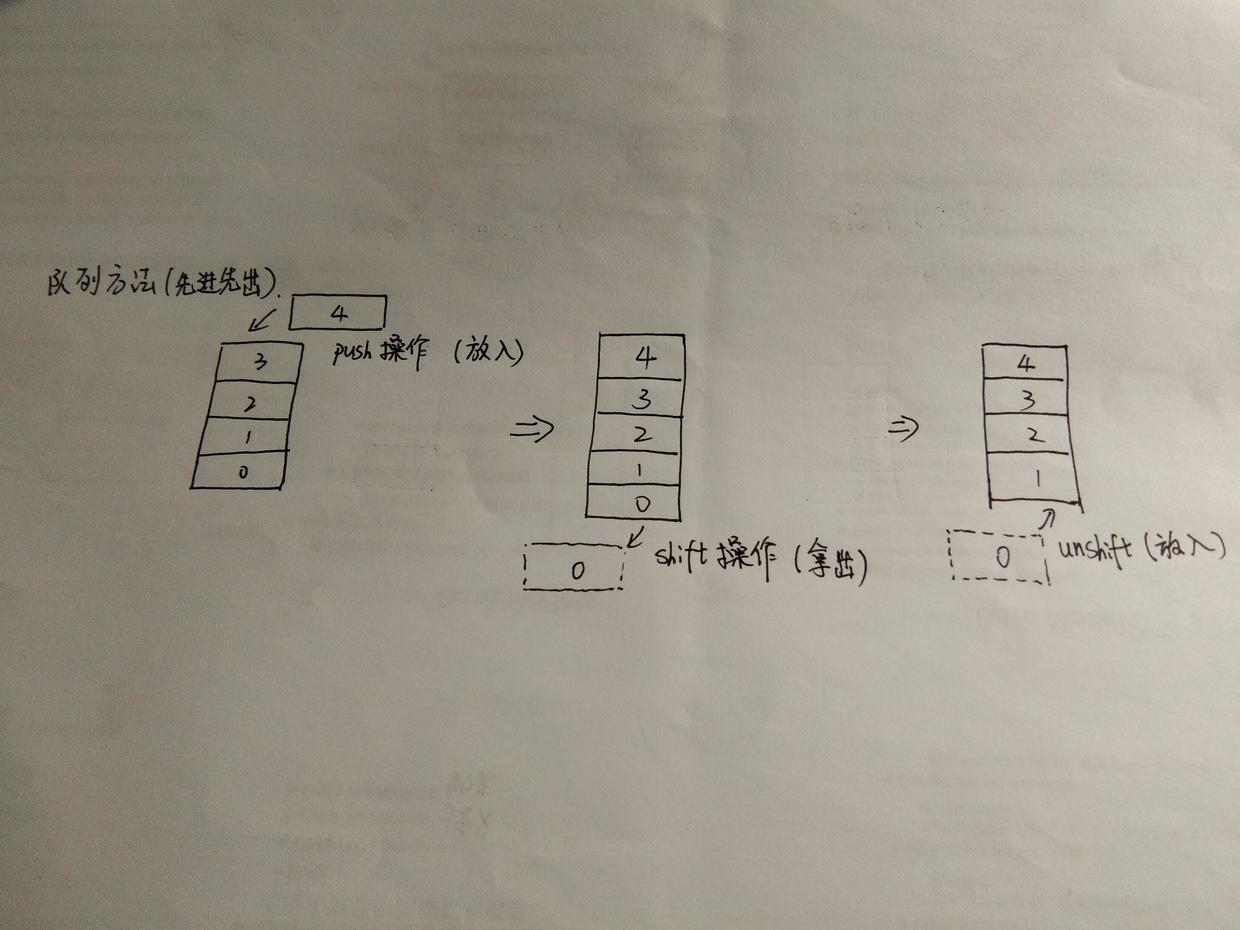 队列方法(先进先出).
4
push 操作 (放入)
3
2
1
0
⇒
4
3
2
1
0
0
shift 操作 (拿出)
⇒
4
3
2
1
0
unshift (放入)